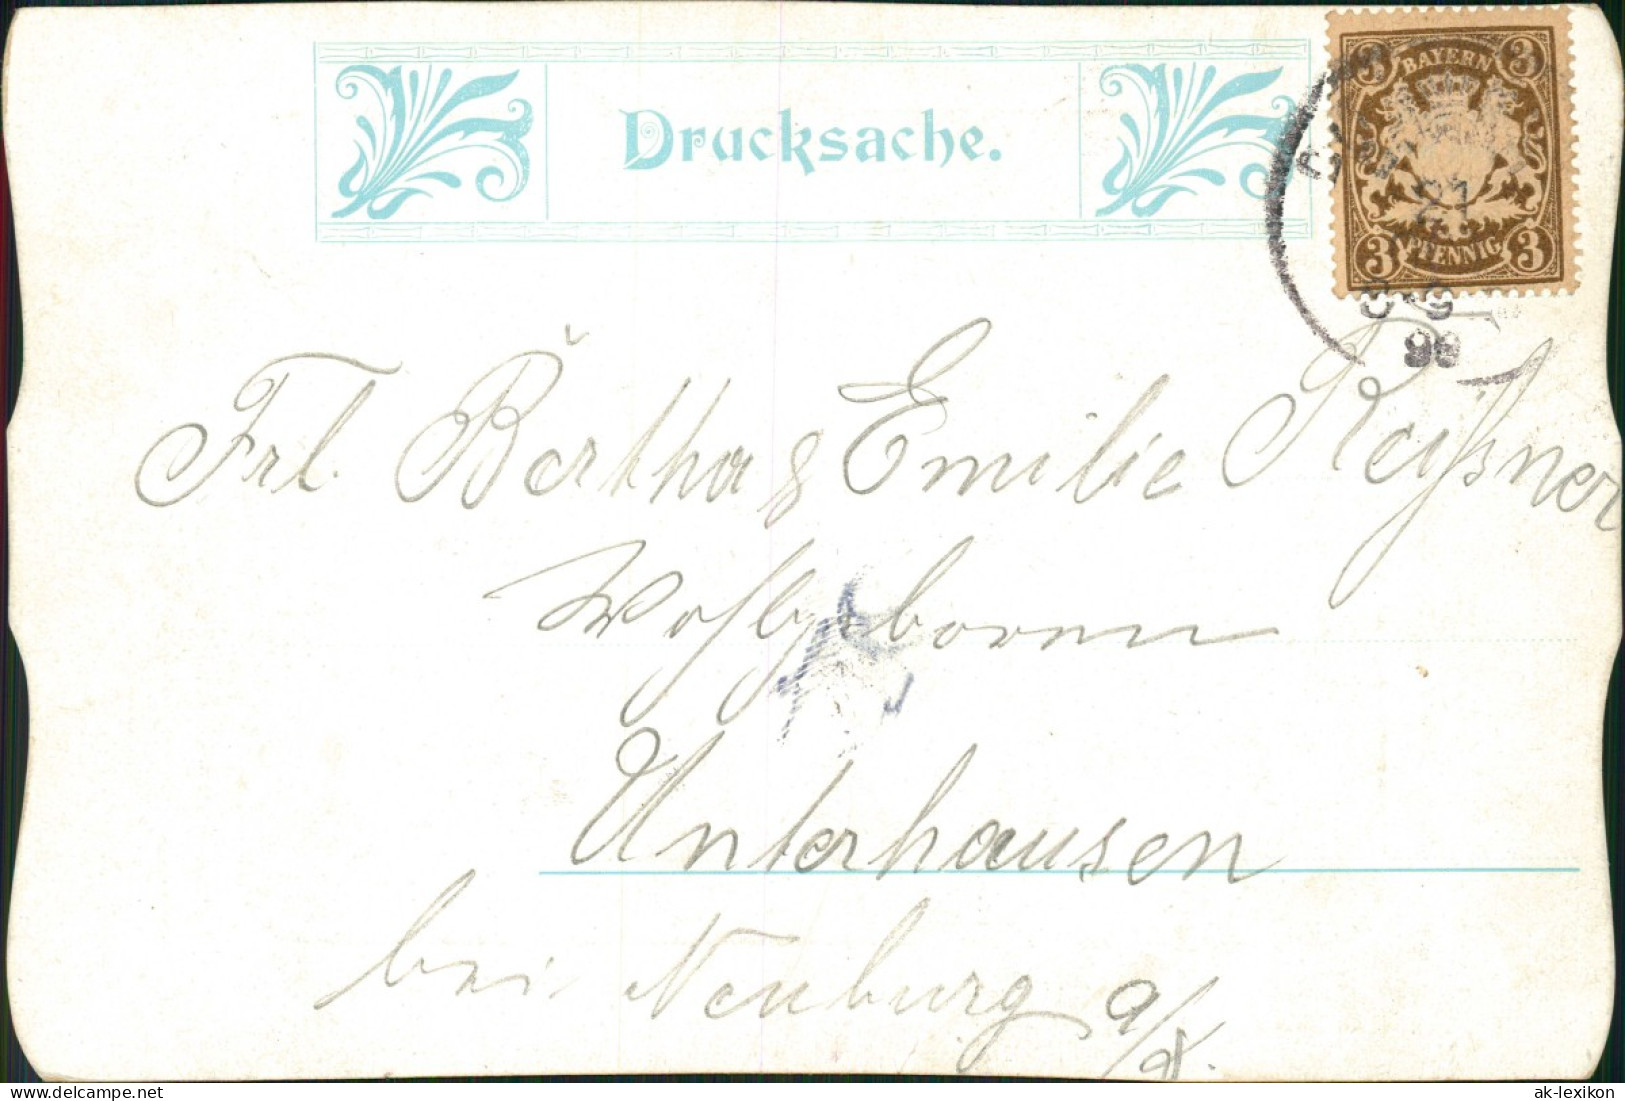 Drucksache.
BAYERN
3 3
21
3 PFENNIG 3
8-9
99
Frl. Bertha & Emilie Reißner
Wohlgeboren
Unterhausen
bei Neuburg a/
www.delcampe.net
ak-lexikon